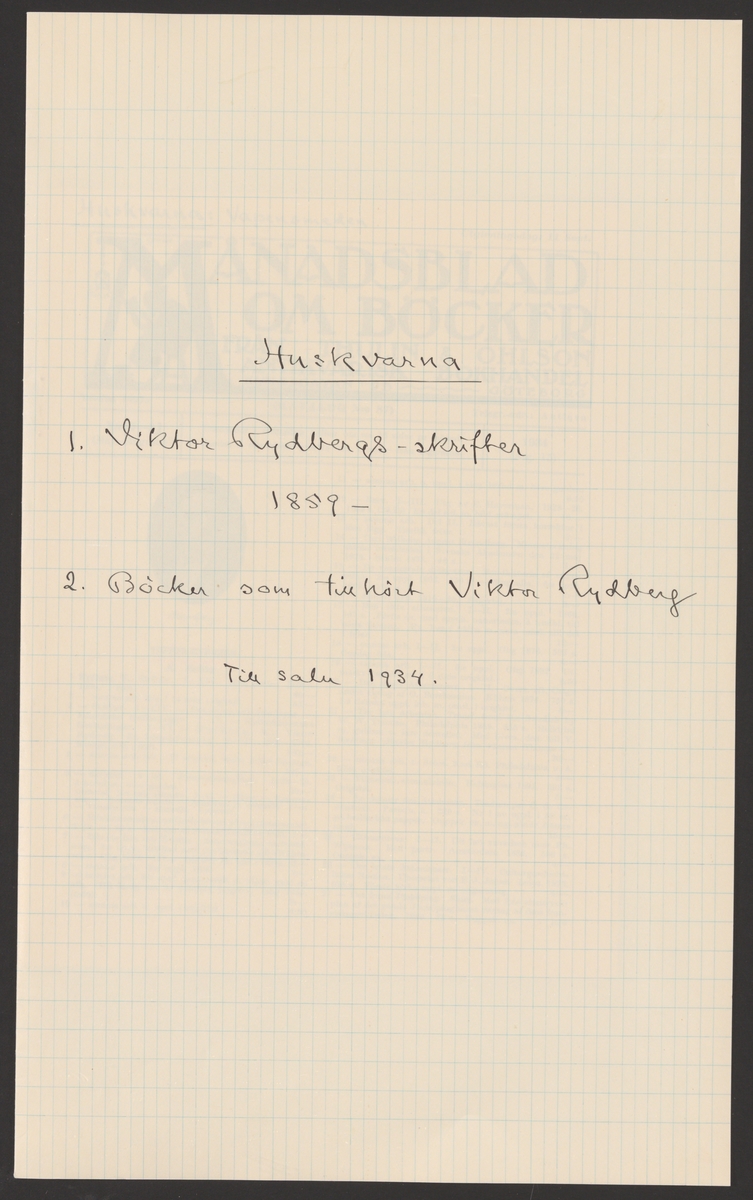 Huskvarna
1. Viktor Rydbergs-skrifter
1859 –
2. Böcker som tillhört Viktor Rydberg
Till salu 1934.
MÅNADSBLAD
OM BÖCKER